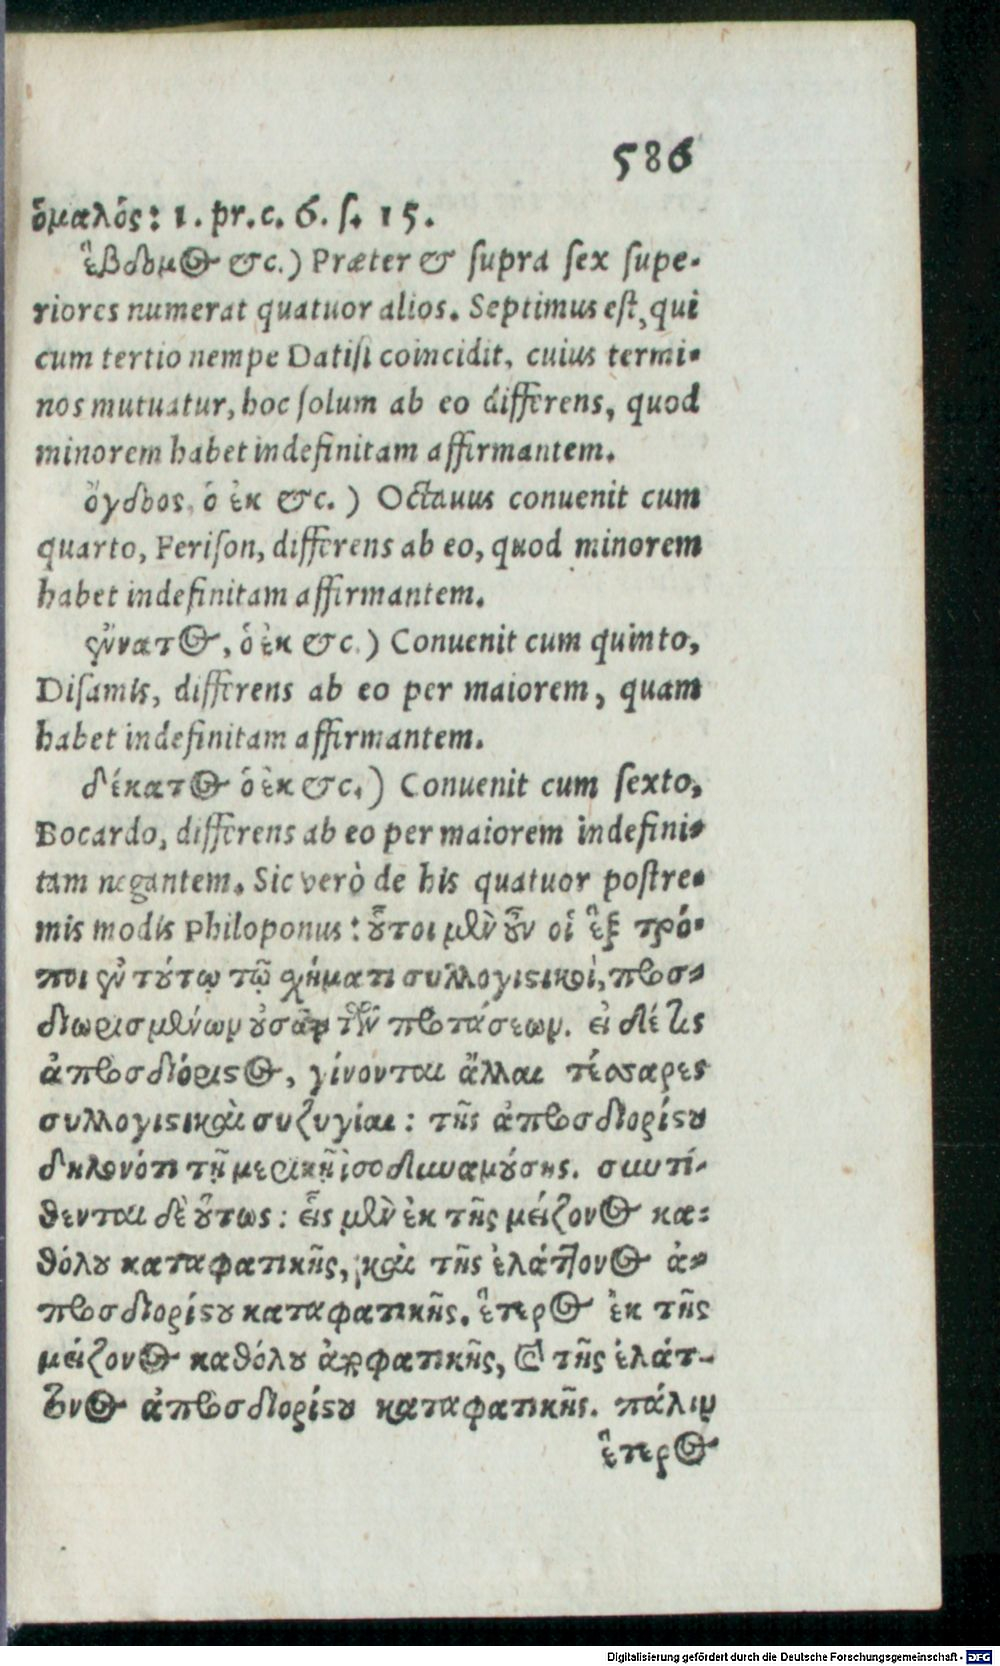 586
ὁμαλός: 1. pr. c. 6. ſ. 15.
ἕβδομος &c.) Præter & ſupra ſex ſupe-
riores numerat quatuor alios. Septimus eſt, qui
cum tertio nempe Datiſi coincidit, cuius termi-
nos mutuatur, hoc ſolum ab eo differens, quod
minorem habet indefinitam affirmantem.
ὄγδοος, ὁ ἐκ &c.) Octauus conuenit cum
quarto, Feriſon, differens ab eo, quod minorem
habet indefinitam affirmantem.
ἔννατος, ὁ ἐκ &c.) Conuenit cum quinto,
Diſamis, differens ab eo per maiorem, quam
habet indefinitam affirmantem.
δέκατος ὁ ἐκ &c.) Conuenit cum ſexto,
Bocardo, differens ab eo per maiorem indefini-
tam negantem. Sic verò de his quatuor poſtre-
mis modis Philoponus: οὗτοι μὲν οὖν οἱ ἓξ τρό-
ποι ἐν τούτῳ τῷ σχήματι συλλογιστικοὶ, προσ-
διωρισμένων οὐσῶν τῶν προτάσεων. εἰ δέ τις
ἀπροσδιόριστος, γίνονται ἄλλαι τέσσαρες
συλλογιστικαὶ συζυγίαι: τῆς ἀπροσδιορίστου
δηλονότι τῇ μερικῇ ἰσοδυναμούσης. συντί-
θενται δὲ οὕτως: εἷς μὲν ἐκ τῆς μείζονος κα-
θόλου καταφατικῆς, καὶ τῆς ἐλάττονος ἀ-
προσδιορίστου καταφατικῆς. ἕτερος ἐκ τῆς
μείζονος καθόλου ἀποφατικῆς, καὶ τῆς ἐλάτ-
τονος ἀπροσδιορίστου καταφατικῆς. πάλιν
ἕτερος
Digitalisierung gefördert durch die Deutsche Forschungsgemeinschaft - DFG